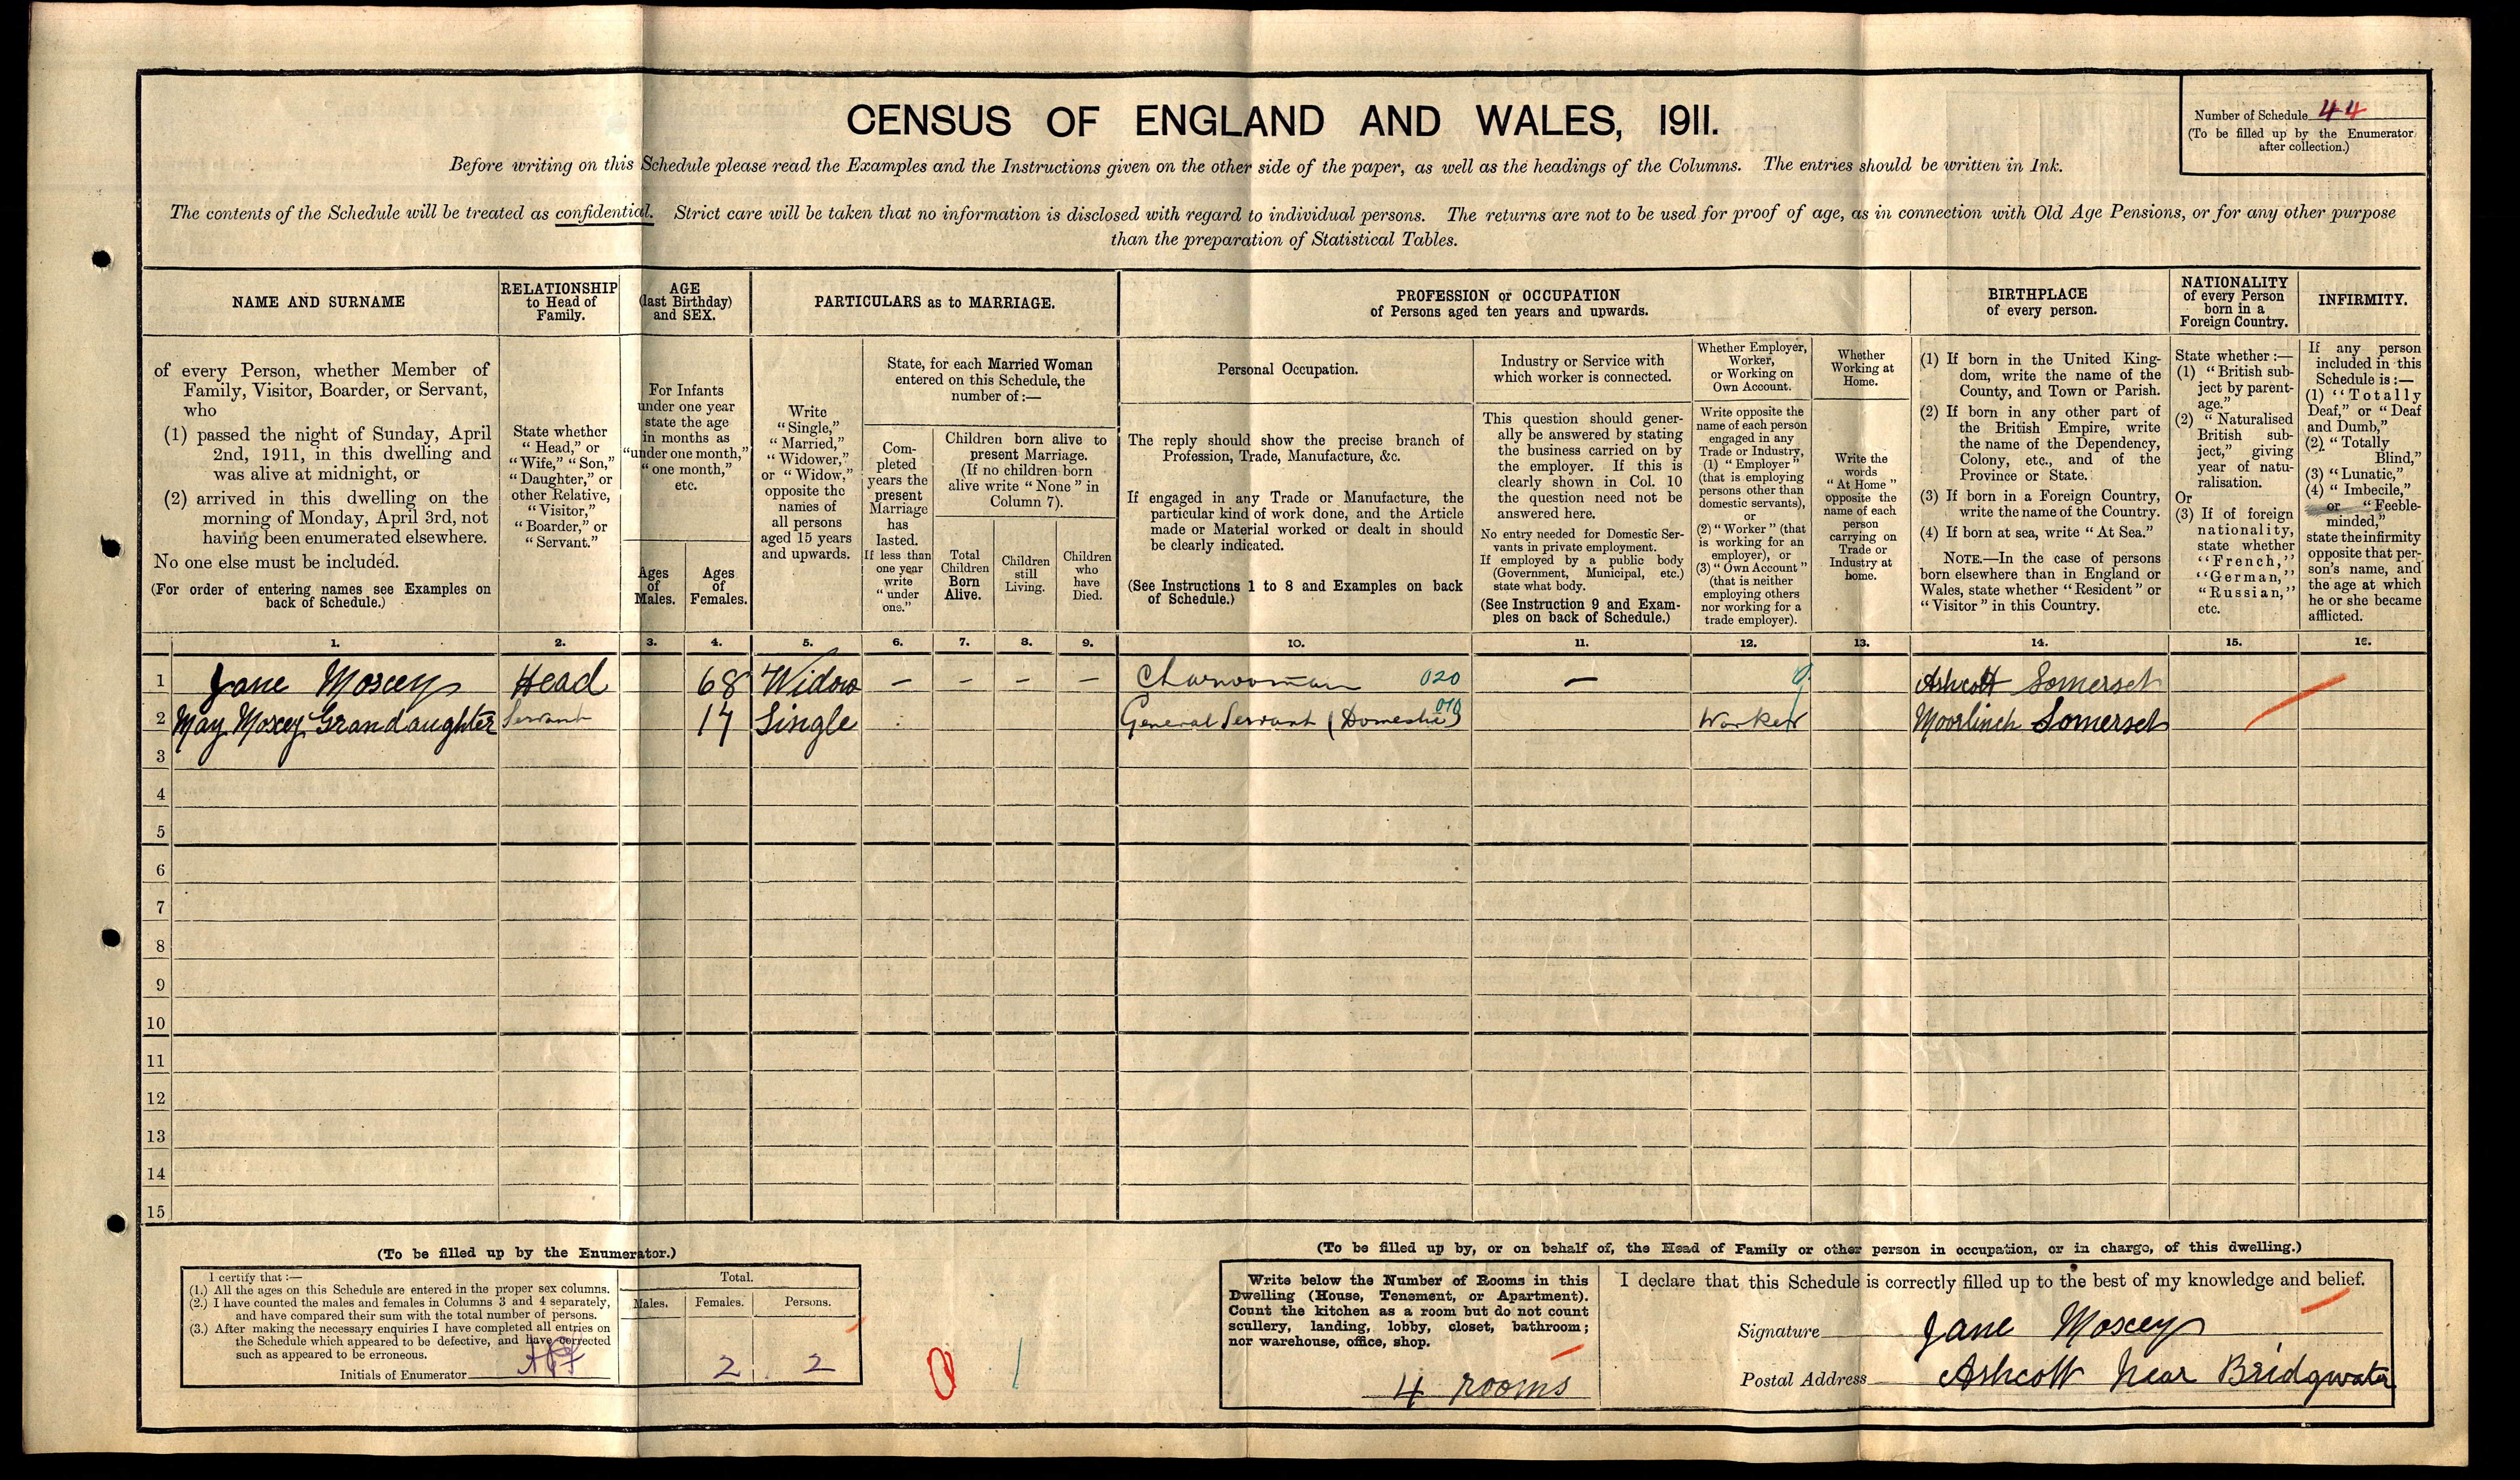 CENSUS OF ENGLAND AND WALES, 1911.
Number of Schedule 44
(To be filled up by the Enumerator
after collection.)
Before writing on this Schedule please read the Examples and the Instructions given on the other side of the paper, as well as the headings of the Columns. The entries should be written in Ink.
The contents of the Schedule will be treated as confidential. Strict care will be taken that no information is disclosed with regard to individual persons. The returns are not to be used for proof of age, as in connection with Old Age Pensions, or for any other purpose
than the preparation of Statistical Tables.
NAME AND SURNAME
of every Person, whether Member of
Family, Visitor, Boarder, or Servant,
who
(1) passed the night of Sunday, April
2nd, 1911, in this dwelling and
was alive at midnight, or
(2) arrived in this dwelling on the
morning of Monday, April 3rd, not
having been enumerated elsewhere.
No one else must be included.
(For order of entering names see Examples on
back of Schedule.)
RELATIONSHIP
to Head of
Family.
State whether
"Head," or
"Wife," "Son,"
"Daughter," or
other Relative,
"Visitor,"
"Boarder," or
"Servant."
AGE
(last Birthday)
and SEX.
For Infants
under one year
state the age
in months as
"under one month,"
"one month,"
etc.
Ages
of
Males.
Ages
of
Females.
PARTICULARS as to MARRIAGE.
Write
"Single,"
"Married,"
"Widower,"
or "Widow,"
opposite the
names of
all persons
aged 15 years
and upwards.
State, for each Married Woman
entered on this Schedule, the
number of:—
Com-
pleted
years the
present
Marriage
has
lasted.
If less than
one year
write
"under
one."
Children born alive to
present Marriage.
(If no children born
alive write "None" in
Column 7).
Total
Children
Born
Alive.
Children
still
Living.
Children
who
have
Died.
PROFESSION or OCCUPATION
of Persons aged ten years and upwards.
Personal Occupation.
The reply should show the precise branch of
Profession, Trade, Manufacture, &c.
If engaged in any Trade or Manufacture, the
particular kind of work done, and the Article
made or Material worked or dealt in should
be clearly indicated.
(See Instructions 1 to 8 and Examples on back
of Schedule.)
Industry or Service with
which worker is connected.
This question should gener-
ally be answered by stating
the business carried on by
the employer. If this is
clearly shown in Col. 10
the question need not be
answered here.
No entry needed for Domestic Ser-
vants in private employment.
If employed by a public body
(Government, Municipal, etc.)
state what body.
(See Instruction 9 and Exam-
ples on back of Schedule.)
Whether Employer,
Worker,
or Working on
Own Account.
Write opposite the
name of each person
engaged in any
Trade or Industry,
(1) "Employer"
(that is employing
persons other than
domestic servants),
or
(2) "Worker" (that
is working for an
employer), or
(3) "Own Account"
(that is neither
employing others
nor working for a
trade employer).
Whether
Working at
Home.
Write the
words
"At Home"
opposite the
name of each
person
carrying on
Trade or
Industry at
home.
BIRTHPLACE
of every person.
(1) If born in the United King-
dom, write the name of the
County, and Town or Parish.
(2) If born in any other part of
the British Empire, write
the name of the Dependency,
Colony, etc., and of the
Province or State.
(3) If born in a Foreign Country,
write the name of the Country.
(4) If born at sea, write "At Sea."
NOTE.—In the case of persons
born elsewhere than in England or
Wales, state whether "Resident" or
"Visitor" in this Country.
NATIONALITY
of every Person
born in a
Foreign Country.
State whether:—
(1) "British sub-
ject by parent-
age."
(2) "Naturalised
British sub-
ject," giving
year of natu-
ralisation.
Or
(3) If of foreign
nationality,
state whether
"French,"
"German,"
"Russian,"
etc.
INFIRMITY.
If any person
included in this
Schedule is:—
(1) "Totally
Deaf," or "Deaf
and Dumb,"
(2) "Totally
Blind,"
(3) "Lunatic,"
(4) "Imbecile,"
or "Feeble-
minded,"
state the infirmity
opposite that per-
son's name, and
the age at which
he or she became
afflicted.
1. 2. 3. 4. 5. 6. 7. 8. 9. 10. 11. 12. 13. 14. 15. 16.
1 Jane Moxey Head 68 Widow – – – – Charwoman 020 – Ashcott Somerset
2 May Moxey Grandaughter Servant 17 Single General Servant (Domestic) 010 Worker Moorlinch Somerset
3
4
5
6
7
8
9
10
11
12
13
14
15
(To be filled up by the Enumerator.)
I certify that:—
(1.) All the ages on this Schedule are entered in the proper sex columns.
(2.) I have counted the males and females in Columns 3 and 4 separately,
and have compared their sum with the total number of persons.
(3.) After making the necessary enquiries I have completed all entries on
the Schedule which appeared to be defective, and have corrected
such as appeared to be erroneous.
Initials of Enumerator
Total.
Males. Females. Persons.
2 2
0 1
(To be filled up by, or on behalf of, the Head of Family or other person in occupation, or in charge, of this dwelling.)
Write below the Number of Rooms in this
Dwelling (House, Tenement, or Apartment).
Count the kitchen as a room but do not count
scullery, landing, lobby, closet, bathroom;
nor warehouse, office, shop.
4 rooms
I declare that this Schedule is correctly filled up to the best of my knowledge and belief.
Signature Jane Moxey
Postal Address Ashcott Near Bridgwater